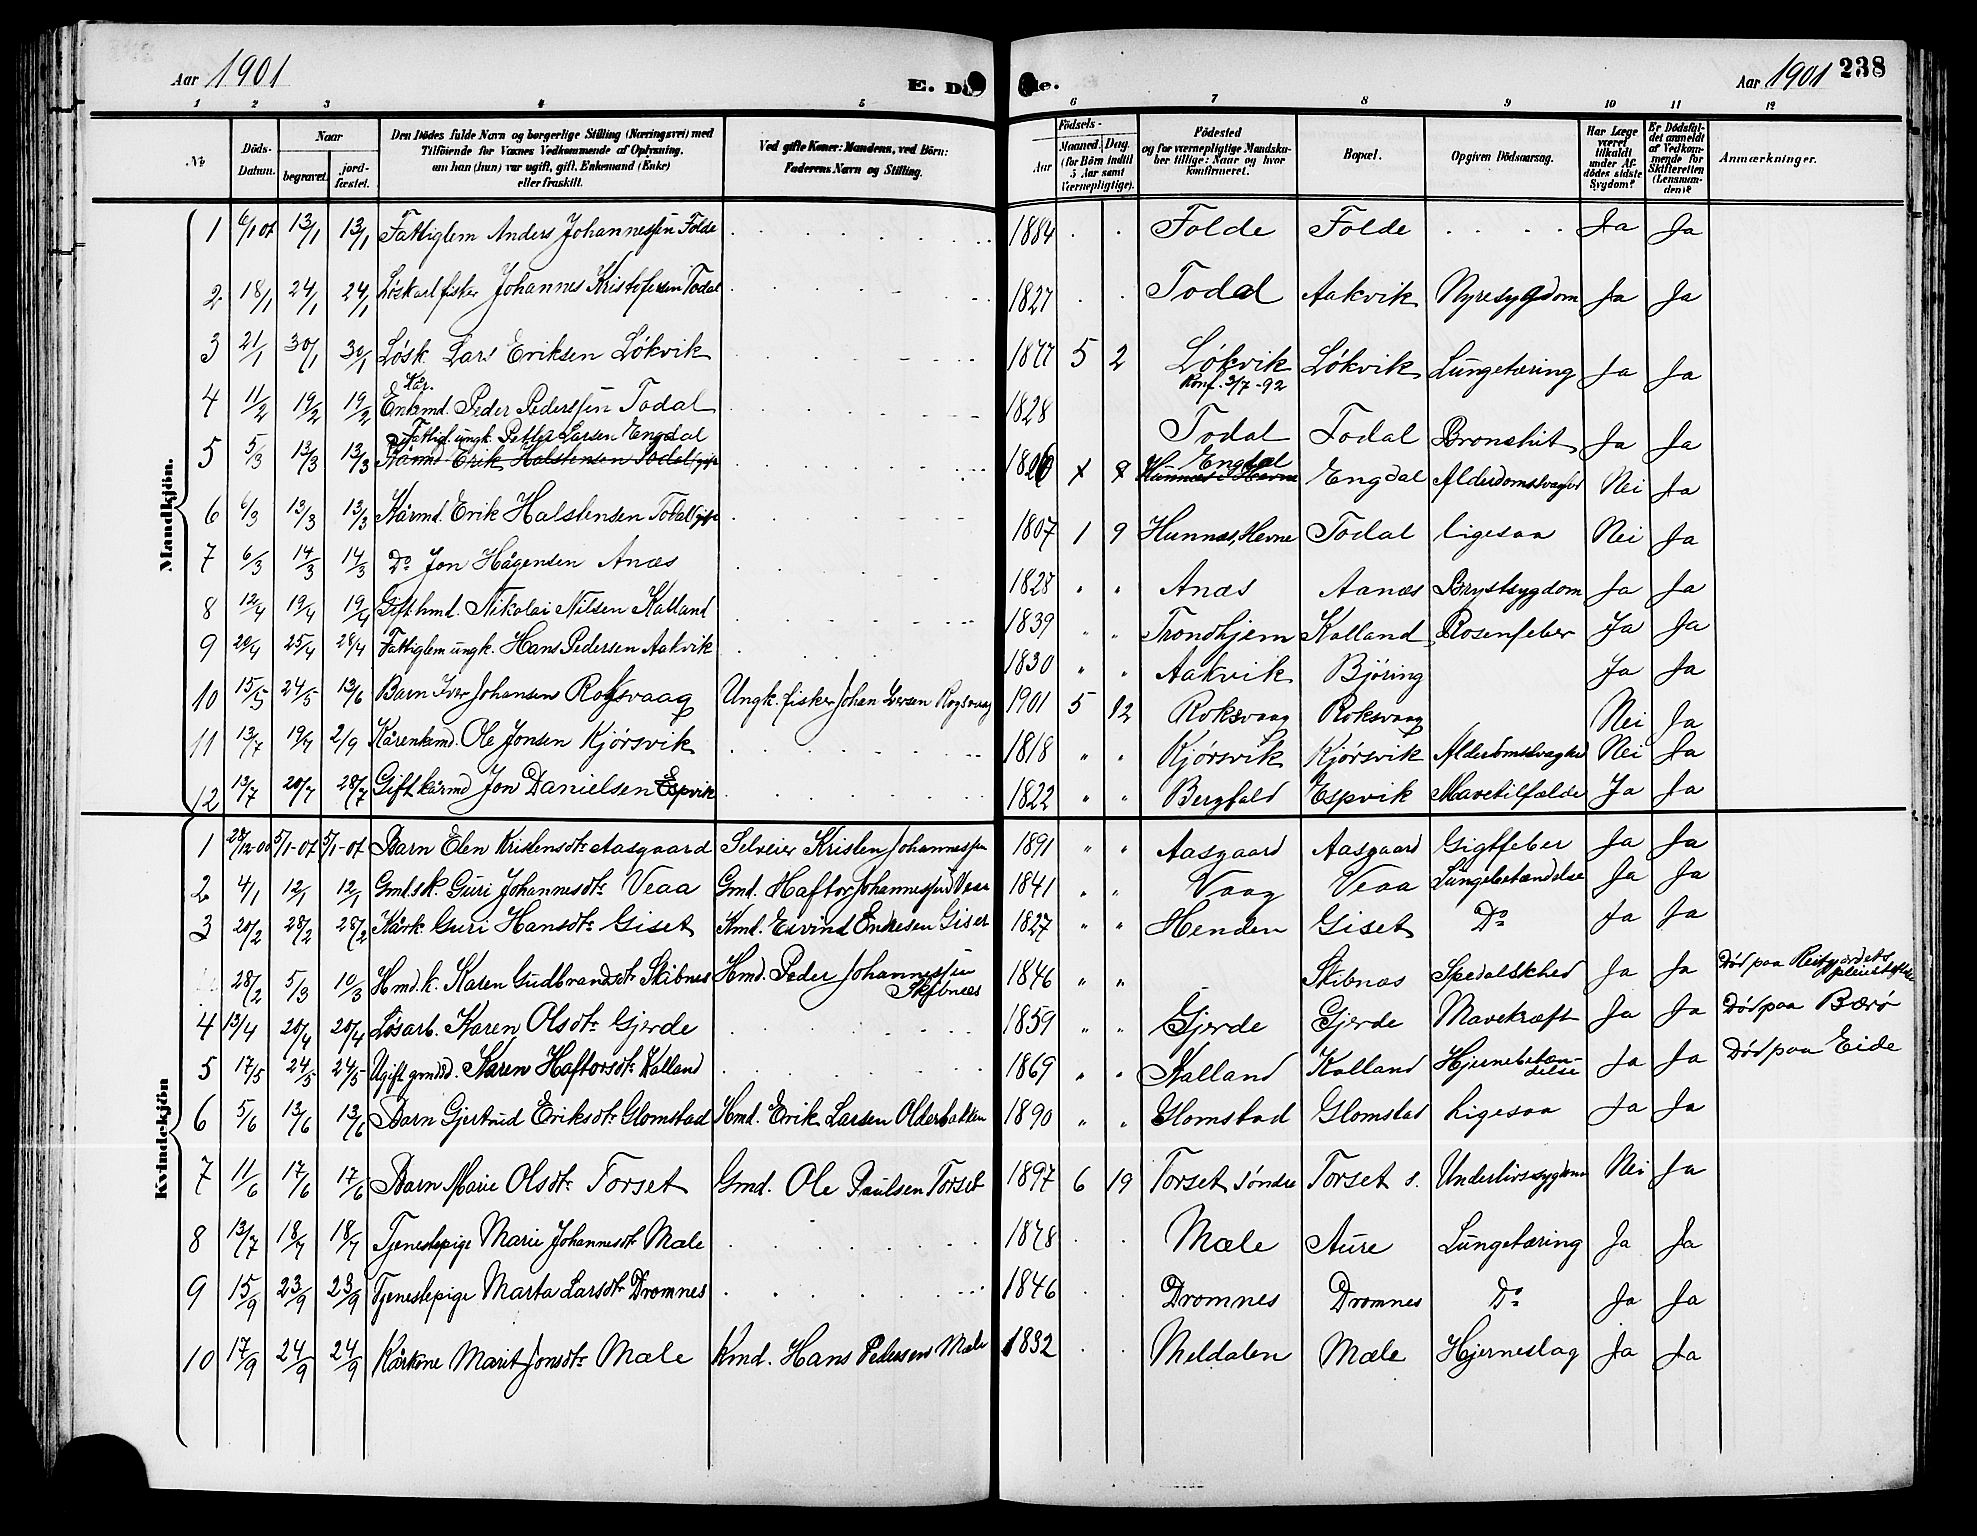 Aar 1901 E. Dø de. Aar 1901 238
1 2 3 4 5 6 7 8 9 10 11 12
No. Døds-Datum. Naar begravet. jord-fæstet. Den Dødes fulde Navn og borgerlige Stilling (Næringsvei) med Tilføiende for Voxnes Vedkommende af Oplysning, om han (hun) var ugift, gift, Enkemand (Enke) eller fraskilt. Ved gifte Koner: Mandens, ved Børn: Faderens Navn og Stilling. Fødsels- Aar Maaned. Dag. (for Børn indtil 5 Aar samt Værnepligtige). Fødested og for værnepligtige Mandskaber tillige: Naar og hvor konfirmeret. Bopæl. Opgiven Dødsaarsag. Har Læge været tilkaldt under Afdødes sidste Sygdom? Er Dødsfaldet anmeldt af Vedkommende for Skifteretten (Lensmanden)? Anmærkninger.
Mandkjøn.
1 6/1 01 13/1 13/1 Fattiglem Anders Johannessen Folde 1884 Folde Folde Ja Ja
2 18/1 24/1 24/1 Løskarl fisker Johannes Kristofersen Todal 1827 Todal Aakvik Nyresygdom Ja Ja
3 21/1 30/1 30/1 Løsk. Lars Eriksen Løkvik 1877 5 2 Løkvik Konf. 3/7-92 Løkvik Lungetæring Ja Ja
4 11/2 19/2 19/2 Kår. Enkemd. Peder Pederssen Todal 1828 Todal Todal Bronshit Ja Ja
5 5/3 13/3 13/3 Fattigl. ungk. Petter Larsen Engdal Kårmd Erik Halstensen Todal, gift 1826 Engdal Hunnæs i Hevne Engdal Alderdomssvaghed Nei Ja
6 6/3 13/3 13/3 Kårmd. Erik Halstensen Todal gift 1807 1 9 Hunnæs, Hevne Todal ligesaa Nei Ja
7 6/3 14/3 14/3 Do Jon Hågensen Anæs 1828 " " Anæs Aanæs Brystsygdom Ja Ja
8 12/4 19/4 19/4 Gift hmd. Nikolai Nilsen Kalland 1839 " " Trondhjem Kalland Rosenfeber Ja Ja
9 20/4 25/4 28/4 Fattiglem ungk. Hans Pedersen Aakvik 1830 " " Aakvik Bjøring Ja Ja
10 15/5 24/5 13/6 Barn Iver Johansen Roksvaag Ungk. fisker Johan Iversen Rogsvaag 1901 5 12 Roksvaag Roksvaag Nei Ja
11 13/7 19/7 2/9 Kårenkemd. Ole Jonsen Kjørsvik 1818 " " Kjørsvik Kjørsvik Alderdomssvaghed Nei Ja
12 13/7 20/7 28/7 Gift kårmd Jon Danielsen Espvik 1822 " " Bergfald Espvik Mavetilfælde Ja Ja
Kvindekjøn
1 28/12-00 5/1-01 5/1-01 Barn Elen Kristensdtr Aasgaard Selveier Kristen Johannessen 1891 " " Aasgaard Aasgaard Gigtfeber Ja Ja
2 4/1 12/1 12/1 Gmds k. Guri Johannesdtr Veaa Gmd. Haftor Johannessen Veaa 1841 " " Vaag Veaa Lungebetændelse Ja Ja
3 20/2 28/2 28/2 Kårk. Guri Hansdtr Giset Kmd. Eivind Endresen Giset 1827 " " Henden Giset Do Ja Ja
28/2 5/3 10/3 Hmd. k. Karen Gudbrandsdtr Skibnes Hmd. Peder Johannessen Skibnæs 1846 " " Skibnæs Spedalskhed Ja Ja Død paa Reitgjerdets pleiestiftelse
4 13/4 20/4 20/4 Løsarb. Karen Olsdtr Gjerde 1859 " " Gjerde Gjerde Mavekræft Ja Ja Død paa Bærø
5 17/5 24/5 24/5 Ugift gmdsd. Karen Haftorsdtr Kalland 1869 " " Kalland Kalland Hjernebetændelse Ja Ja Død paa Eide
6 5/6 13/6 13/6 Barn Gjertrud Eriksdtr Glomstad Hmd. Erik Larsen Olderbakken 1890 " " Glomstad Glomstad Ligesaa Ja Ja
7 11/6 17/6 17/6 Barn Marie Olsdtr Torset Gmd. Ole Paulsen Torset 1897 6 19 Torset søndre Torset s. Underlivssygdom Nei Ja
8 13/7 18/7 18/7 Tjenestepige Marie Johannesdtr Mæle 1878 Mæle Aure Lungetæring Ja Ja
9 15/9 23/9 23/9 Tjenestepige Marta Larsdtr Dromnes 1846 Dromnes Dromnes Do Ja Ja
10 17/9 24/9 24/9 Kårkone Marit Jonsdtr Mæle Kmd. Hans Pedersen Mæle 1832 Meldalen Mæle Hjerneslag Ja Ja